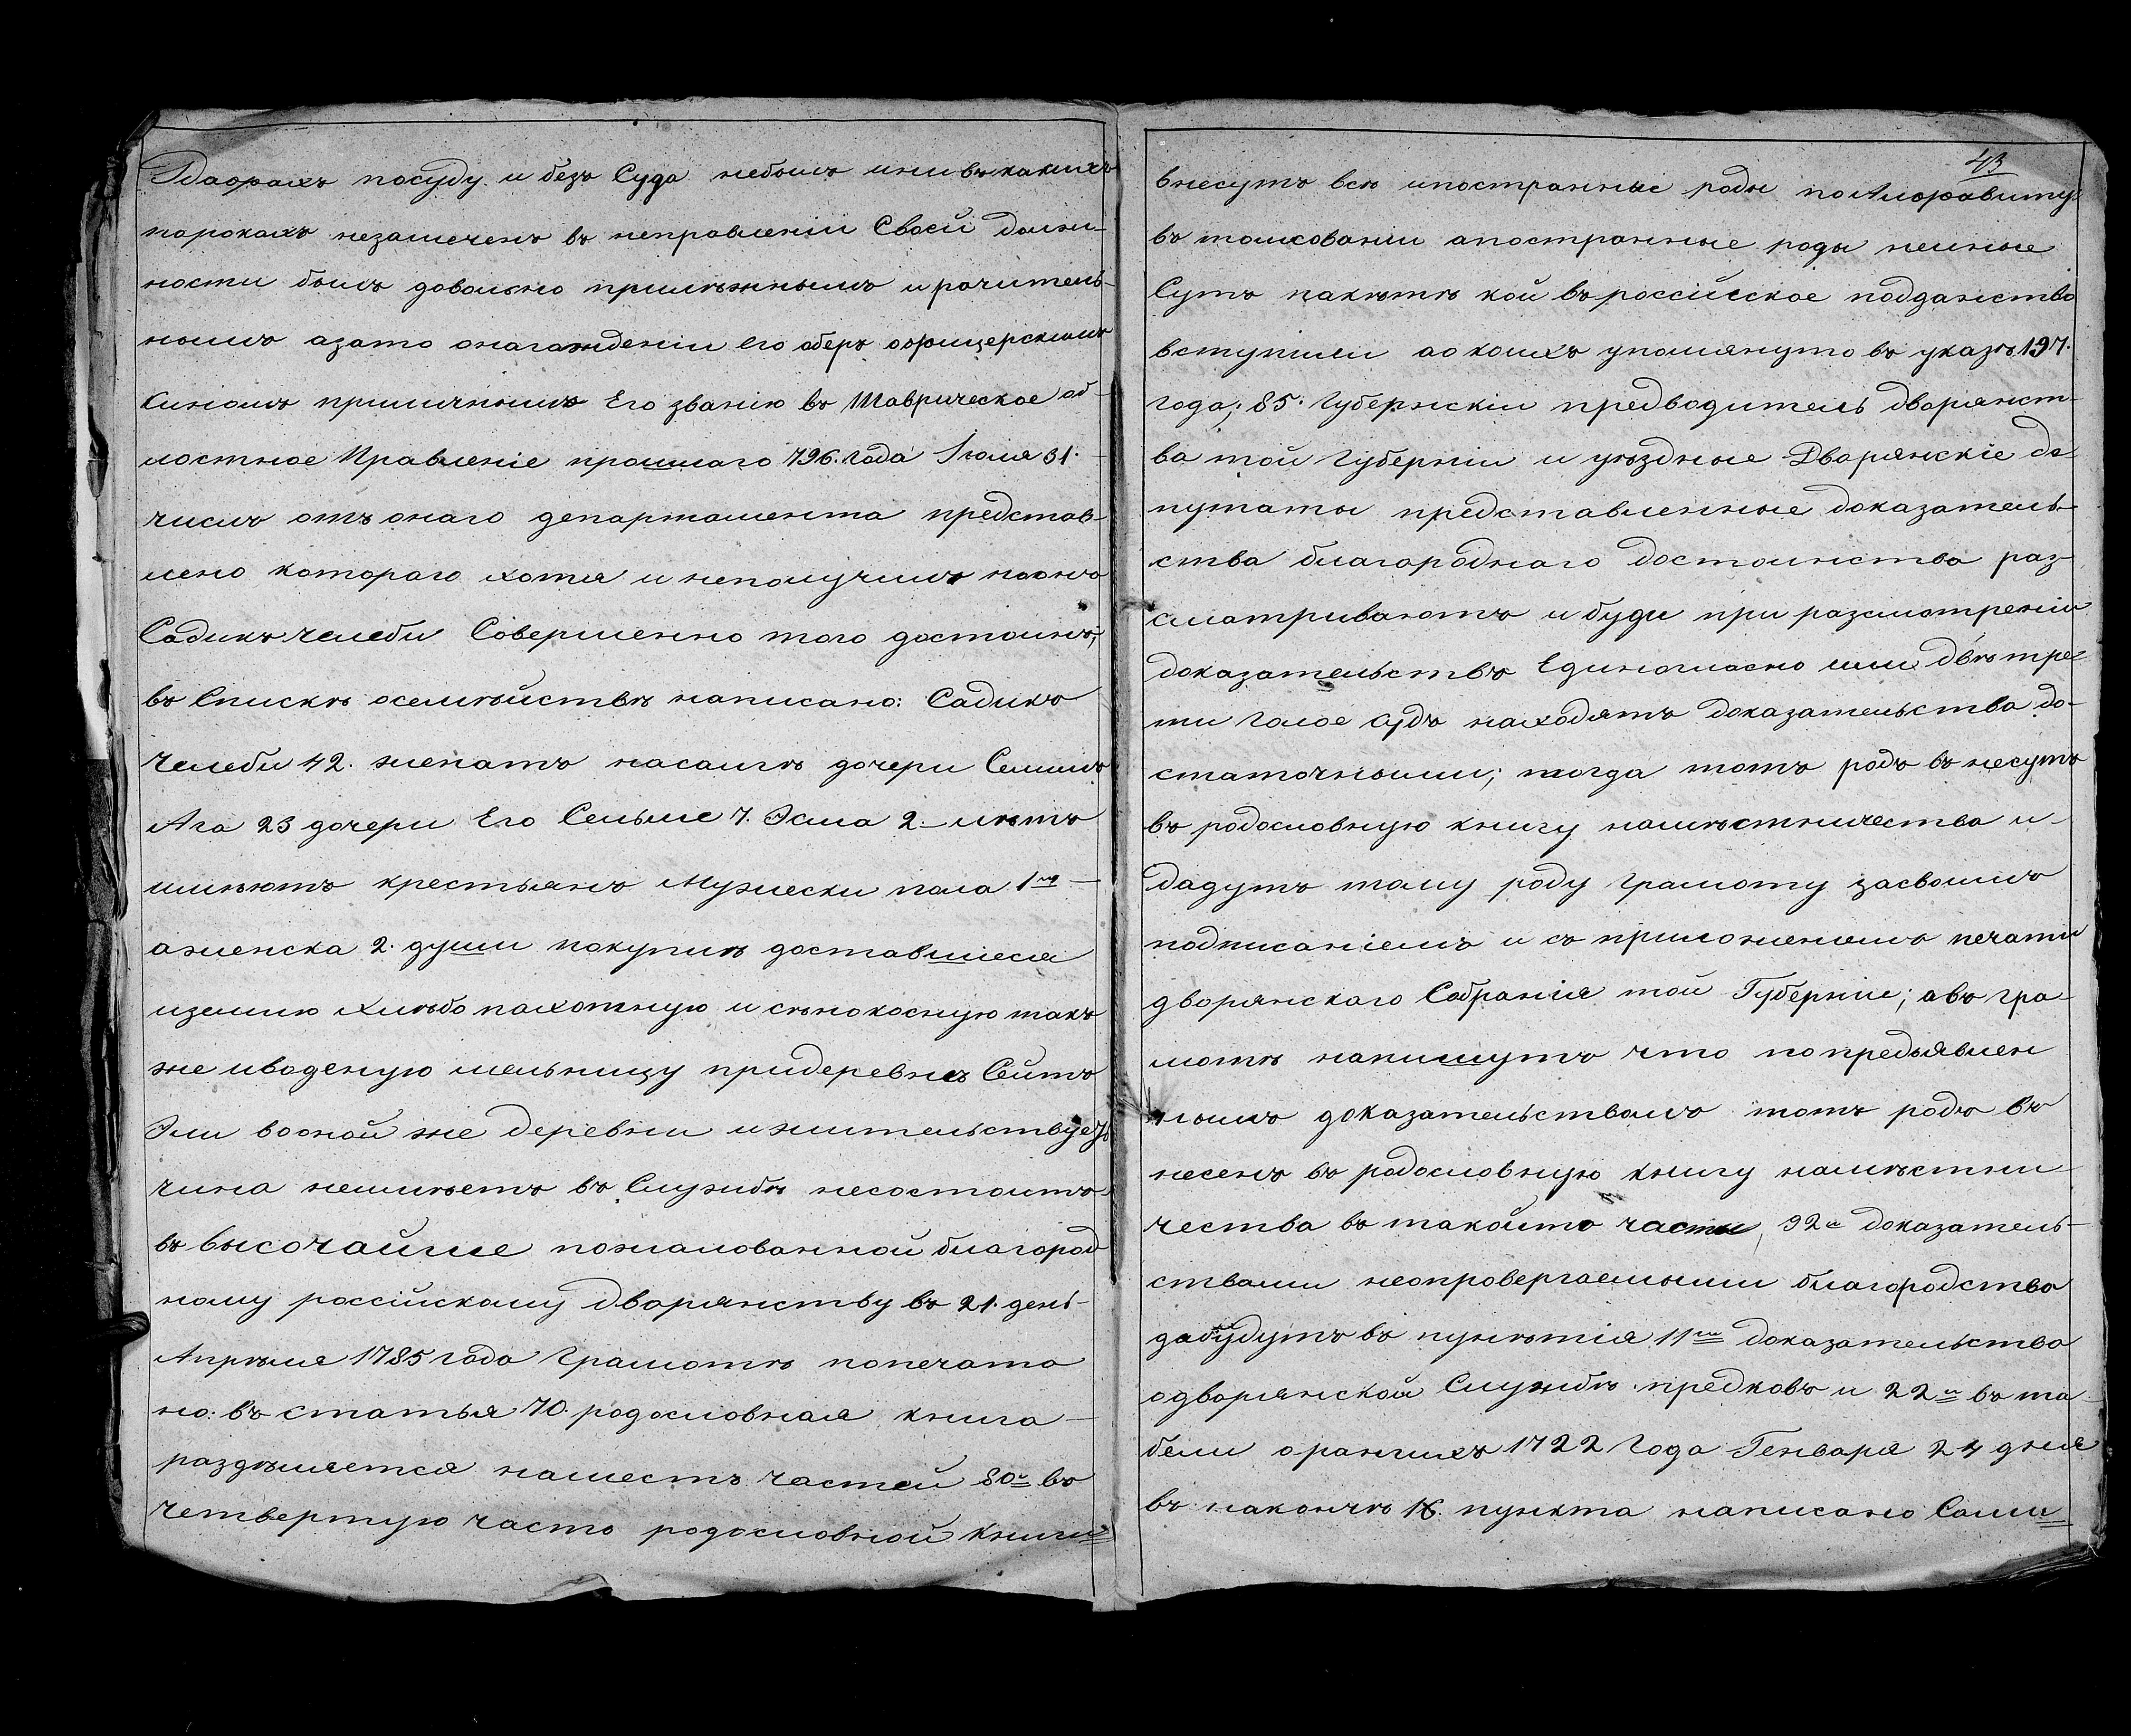 посуду и безъ Суда небылъ инивъкакихъ
порокахъ незамеченъ въ неправленіи Своей долж-
ности былъ довольно прилѣжнымъ и рачитель-
нымъ азато онагаждении его оберъ офицерскимъ
чиномъ приличнымъ Его званію въ Таврическое об-
ластное Правленіе прошлаго 796. года Іюля 31.
числъ отъ онаго департамента представ-
лено котораго хотя и неполучилъ ноонъ
Садикъ челеби Совершенно того достоинъ,
въ Спискѣ осемѣйствѣ написано: Садикъ
Челеби 42. женатъ насамгѣ дочери Селимъ
Ага 23 дочери Его Сельме 7. Эсма 2 – лѣтъ
имѣютъ крестьянъ Мужески пола 1го –
аженска 2. души покупкѣ доставшиеся
иземлю хлѣбо пахотную и сѣнокосную так
же иводеную мельницу придеревнѣ Сеитъ
Эли вооной же деревни ижительствуетъ
чина неимѣетъ въ Службѣ несостоитъ
въ высочайше пожалованной благород
ному россійскому дворянству въ 21. день
Апрѣля 1785 года Грамотѣ попечата
но: въ статья 70. родословная книга –
раздѣляется нашесть частей 80и въ
четвертую часть родословной книги
43
внесутъ всѣ иностранные роды поАлфавиту
въ толкованіи аностранные роды неиные
Суть какътѣ кои въ россійское подданство
вступили аокоихъ упомянуто въ указѣ 197.
года; 85. Губернскіи предводитель дворянст-
ва той Губерніи и уѣздные Дворянскіе де-
путаты представленные доказатель-
ства благороднаго достоинства раз-
сматриваютъ и буде при разсмотреніи
доказательствъ Единогласно или двѣ тре-
ти голос судъ находятъ доказательства до-
статочными; тогда тотъ родъ въ несутъ
въ родословную книгу намѣстничества и
дадутъ тому роду грамоту засвоимъ
подписаніемъ и съ приложенемъ печати
дворянскаго Собранія той Губерніе; авъ гра-
мотѣ напишутъ что попредъявлен
нымъ доказательствамъ тотъ родъ въ
несенъ въ родословную книгу намѣстни-
чества въ такойто части, 92и доказатель-
ствами неопровергаемыми благородство
дабудутъ въ 11мъ доказательство
одворянской Службѣ предковъ и 22и въ та-
бели орангихъ 1722 Года Генваря 24 дня
въ наконцѣ 16. пункта написано Сами